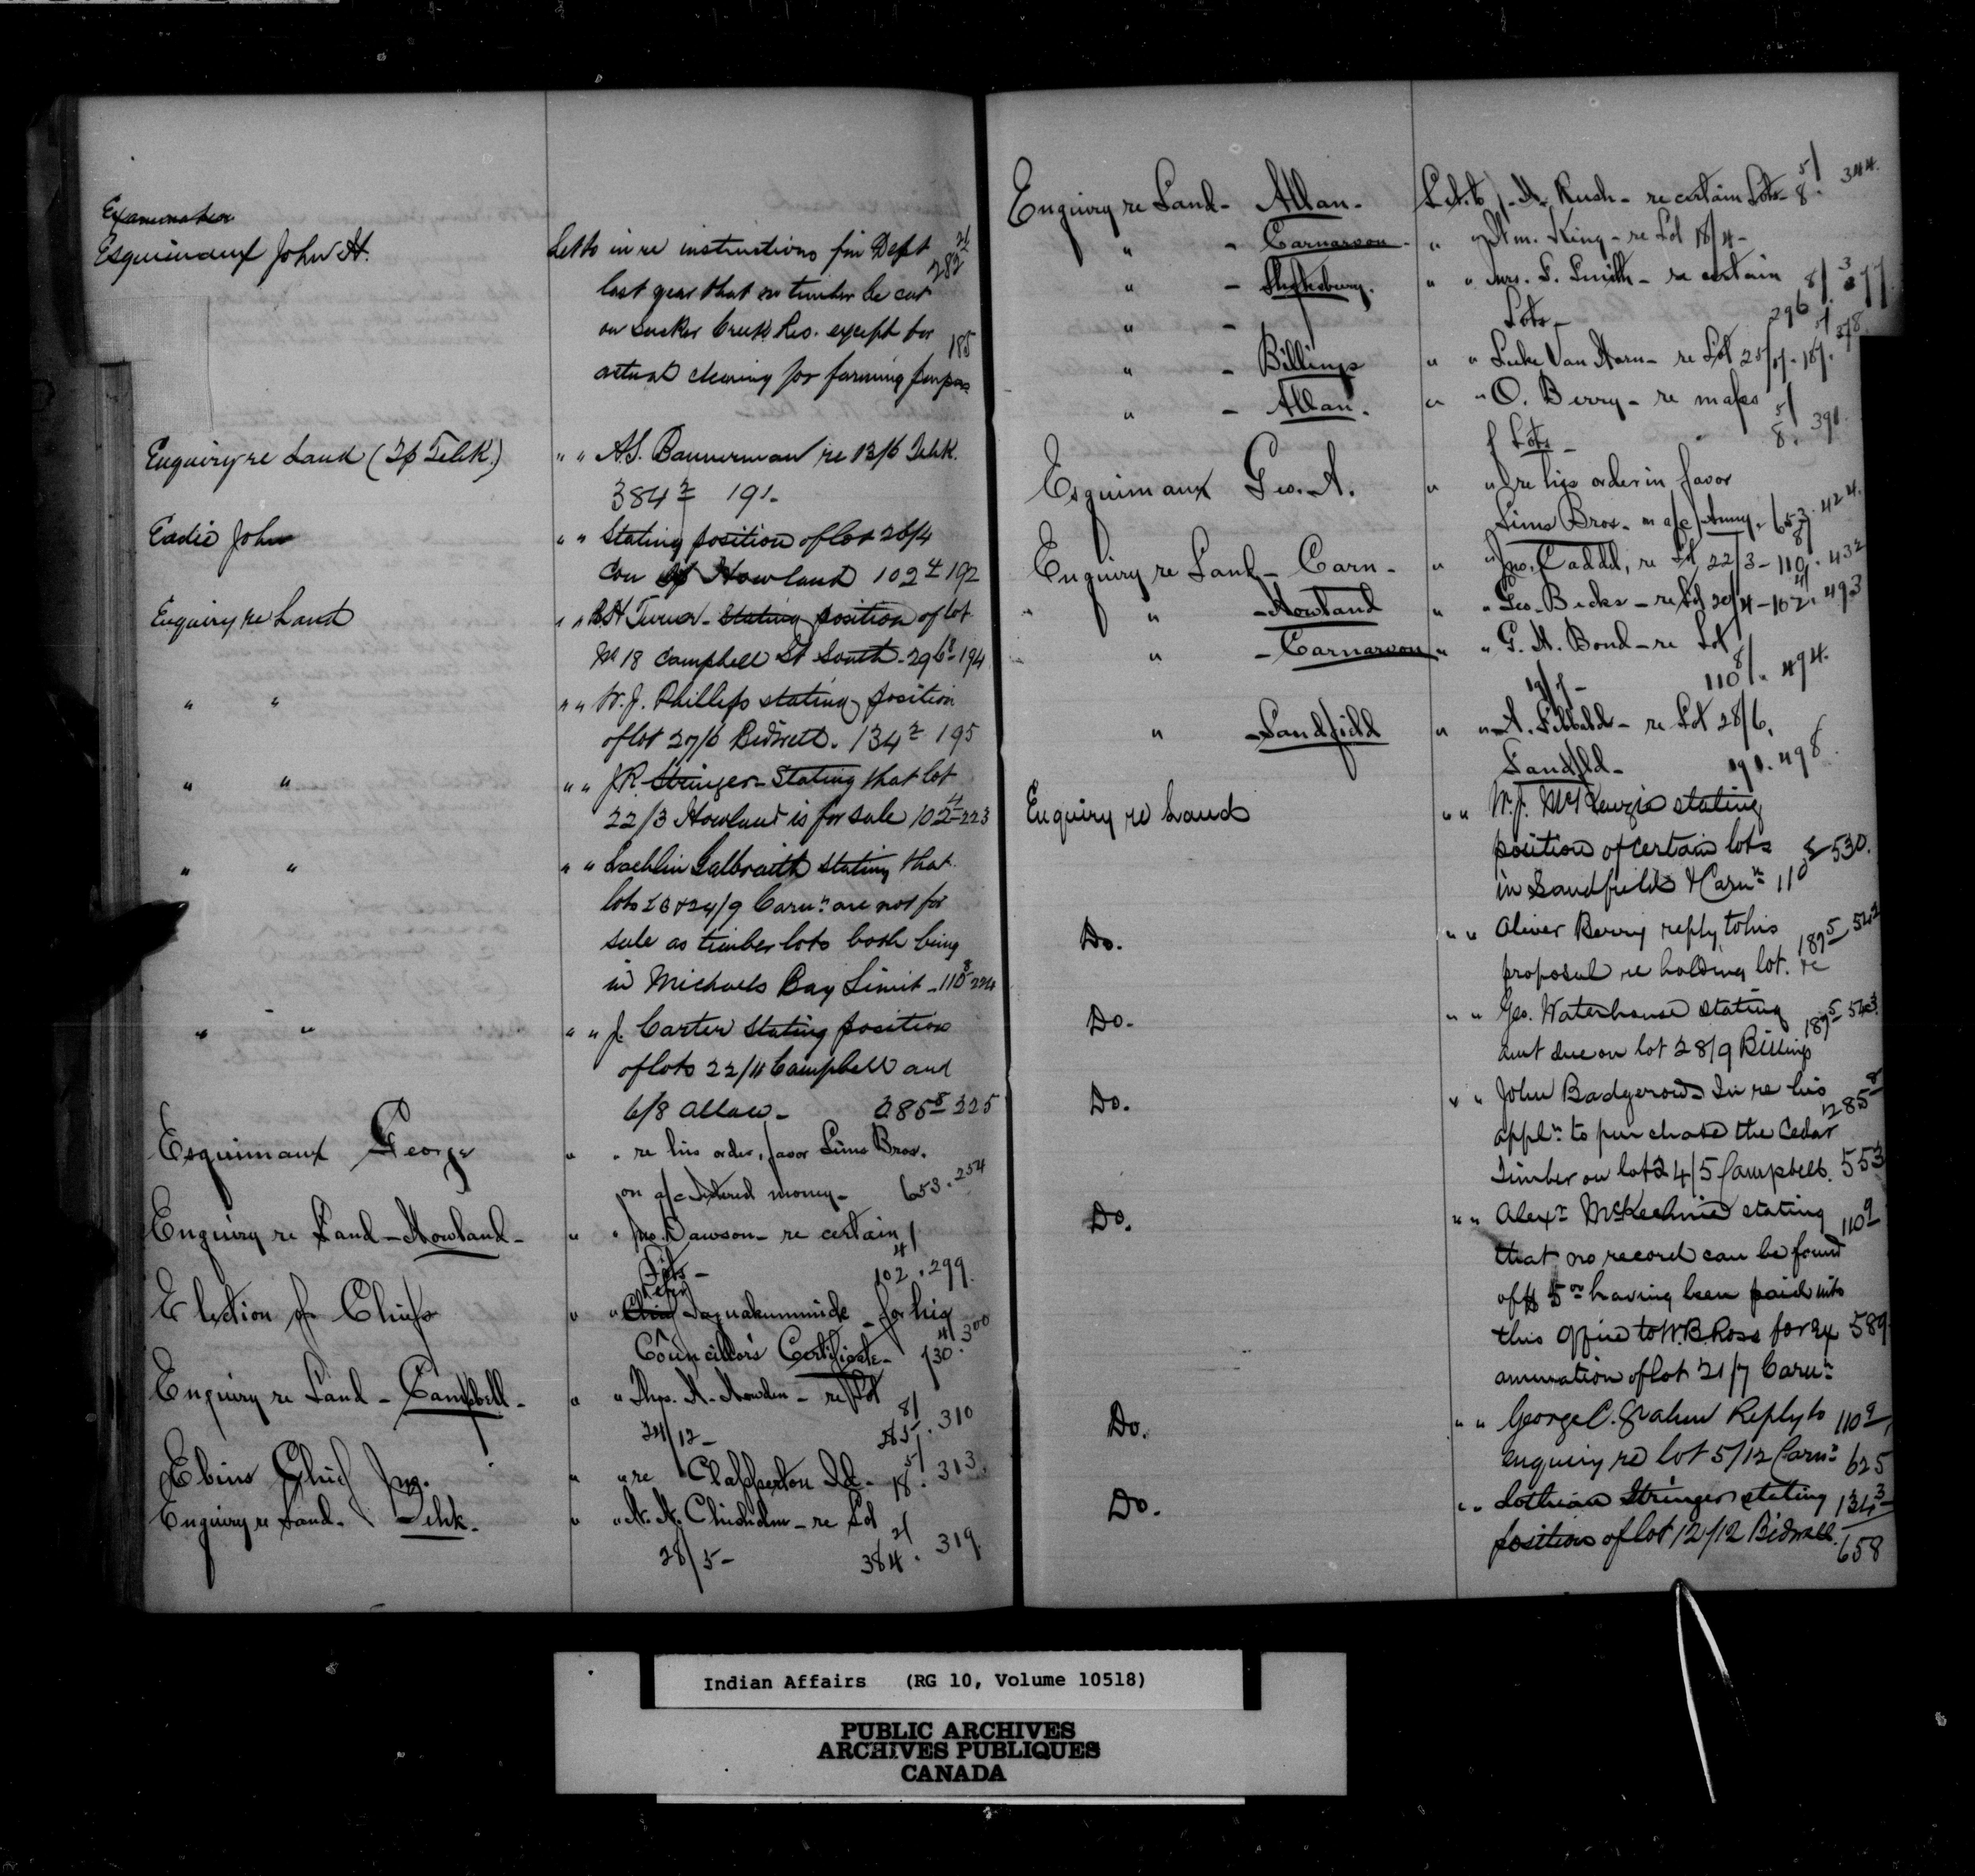 Examination
Esquimaux John H. Lett to in re instructions fm Dept 2/
last year that no timber be cut 282
on Sucker Creek Res. except for
actual clearing for farming purpose 185
Enquiry re Land (Tp Tehk.) " " A.S. Bannerman re 13/6 Tehk.
384 2 191.
Eadie John " " Stating position of lot 26/4
Con Howland 102 4 192
Enquiry re Land " " R H Turner - Stating position of lot
No 18 Campbell St South - 296 194
" " " " W. J. Phillips stating position
of lot 27/6 Bidwell. 134 2 195
" " " " J R Stringer - Stating that lot
22/3 Howland is for sale 102 4 223
" " " " Lachlin Galbraith stating that
lots 23 & 24/9 Carn. are not for
sale as timber lots both being
in Michaels Bay Limit - 110 8 224
" " " " J. Carter Stating position
of lots 22/11 Campbell and
6/8 Allan - 285 8 225
Esquimaux George " " re his order, favor Sims Bros.
on a/c Interest money - 653. 254
Enquiry re Land - Howland - " " Jno. Dawson - re certain
Lots - 102 4/. 299.
Election of Chiefs " " Taguakummide - for his
Councillor's Certificate - 130 4/. 300
Enquiry re Land - Campbell - " " Thos. H. Howden - re Lot
24/12 - 285 8/. 310
Ebins Chief Jno. " " re Clapperton Isd. - 18 5/. 313.
Enquiry re Land. - Tehk. " " N. N. Chisholm - re Lot
28/5 - 384 2/. 319.
Enquiry re Land - Allan - Let. to J. N. Rush - re certain Lots - 8 5/. 344.
" - Carnarvon - " " Wm. King - re Lot 18/4 -
" - Shaftesbury. " " Mrs. S. Smith - re certain 8/ 377
" - Lots - 296
" - Billings " " Luke Van Horn - re Lot 25/11 - 187 5/. 378.
" - Allan. " " O. Berry - re maps
of Lots - 8 5/. 391.
Esquimaux Geo. A. " " re his order in favor
Sims Bros. on a/c Anny. 653. 424.
Enquiry re Land - Carn - " " Jno. Caddel, re Lot 22/3 - 110 8/. 432
" " - Howland " " Geo. Becks - re Lot 20/4 - 102 4/. 493
" - Carnarvon " " G. H. Bond - re Lot
19/7 - 110 8/. 494.
" - Sandfield " " A. Sibbald - re Lot 28/6,
Sandfld - 191. 498.
Enquiry re Land " " W. J. McKenzie stating
position of certain lots 530.
in Sandfield & Carn. 110 8
Do. " " Oliver Berry reply to his
proposal re holding lot. re 187 5 542
Do. " " Geo. Waterhouse stating
amt due on lot 28/9 Billings 187 5 543.
Do. " " John Badgerow - In re his
appln to purchase the Cedar 285 8
Timber on lot 24/5 Campbell. 553
Do. " " Alexr McKechnie stating 110 9
that no record can be found
of $5 00 having been paid into
this Office to W. B. Ross for ex 589
amination of lot 21/7 Carn
Do. " " George C. Graham Reply to 110 9
enquiry re lot 5/12 Carn 625
Do. " " Lothian Stringer stating 134 3
position of lot 12/12 Bidwell. 658
Indian Affairs (RG 10, Volume 10518)
PUBLIC ARCHIVES
ARCHIVES PUBLIQUES
CANADA